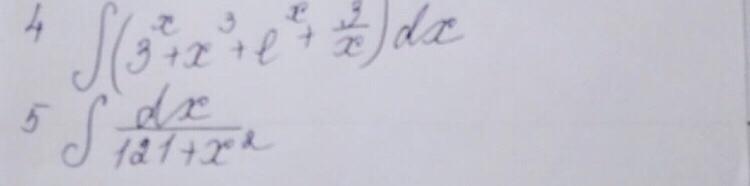 4 ∫(3^x + x^3 + e^x + 3/x) dx
5 ∫ dx/(121 + x^2)